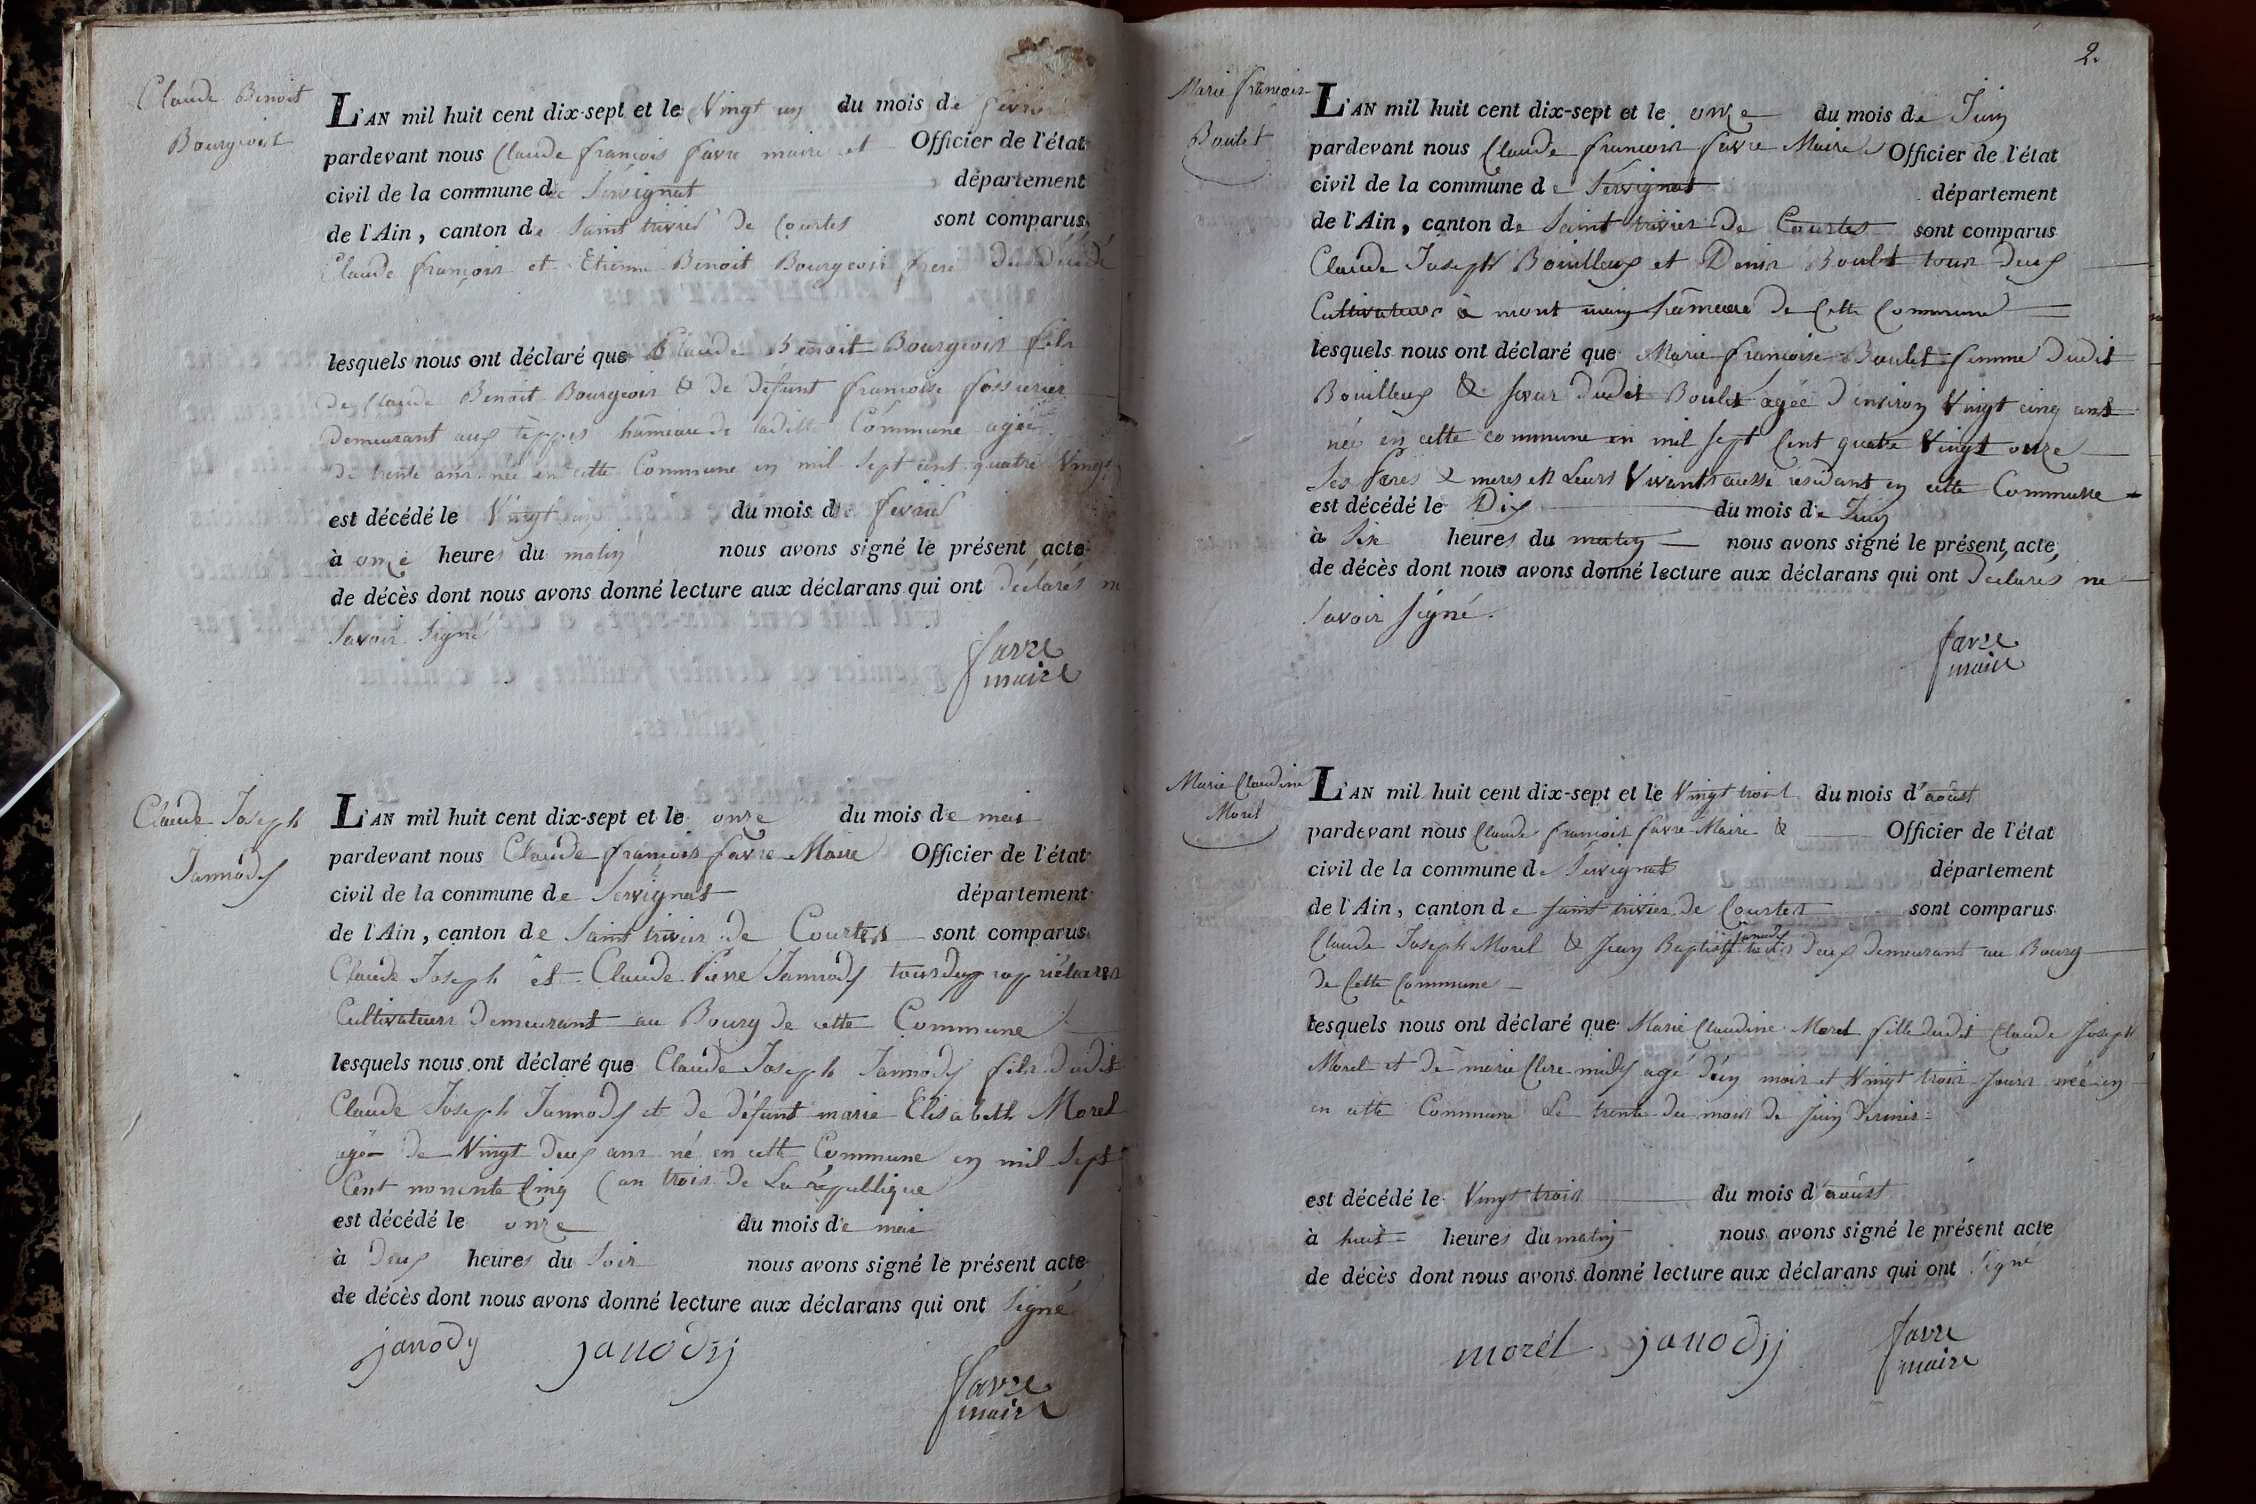 Claude Benoit
Bourgeois
L'AN mil huit cent dix-sept et le Vingt un du mois de fevrier
pardevant nous Claude françois favre maire et Officier de l'état
civil de la commune de Servignat département
de l'Ain, canton de Saint trivier de Courtes sont comparus
Claude françois et Etienne Benoit Bourgeois frere du décédé
lesquels nous ont déclaré que Claude Benoit Bourgeois fils
de Claude Benoit Bourgeois & de défunt françoise
demeurant aux teppes hâmeau de laditte Commune agée
de trente ans née en cette Commune en mil sept cent quatre Vingt
est décédé le Vingt un du mois de fevrier
à onze heures du matin nous avons signé le présent acte
de décès dont nous avons donné lecture aux déclarans qui ont déclarés ne
Savoir Signé
favre
maire
Claude Joseph
Jannody
L'AN mil huit cent dix-sept et le onze du mois de mai
pardevant nous Claude françois favre Maire Officier de l'état
civil de la commune de Servignat département
de l'Ain, canton de Saint trivier de Courtes sont comparus
Claude Joseph et Claude Pierre Jannody tous deux propriétaires
Cultivateurs demeurant au Bourg de cette Commune
lesquels nous ont déclaré que Claude Joseph Jannody fils dudit
Claude Joseph Jannody et de défunt marie Elisabeth Morel
agé de Vingt deux ans né en cette Commune en mil Sept
Cent nonente Cinq (an trois de La république
est décédé le onze du mois de mai
à deux heures du Soir nous avons signé le présent acte
de décès dont nous avons donné lecture aux déclarans qui ont Signé
janody janodij
favre
maire
2.
Marie françoise
Boulet
L'AN mil huit cent dix-sept et le onze du mois de Juin
pardevant nous Claude francois favre Maire Officier de l'état
civil de la commune de Servignat département
de l'Ain, canton de Saint trivier de Courtes sont comparus
Claude Joseph Bouilloux et Denis Boulet tous deux
Cultivateurs à mont hâmeau de Cette Commune
lesquels nous ont déclaré que Marie françoise Boulet femme dudit
Bouilloux & soeur dudit Boulet agée d'environ Vingt cinq ans
née en cette commune en mil sept Cent quatre Vingt onze
Ses Peres & meres Vivants aussi residant en cette Commune
est décédé le Dix du mois de Juin
à Six heures du matin nous avons signé le présent acte
de décès dont nous avons donné lecture aux déclarans qui ont déclarés ne
Savoir Signé.
favre
maire
Marie Claudine
Morel
L'AN mil huit cent dix-sept et le Vingt trois du mois d'août
pardevant nous Claude francois favre Maire & Officier de l'état
civil de la commune de Servignat département
de l'Ain, canton de Saint trivier de Courtes sont comparus
janody
Claude Joseph Morel & Jean Baptiste tous deux demeurant au Bourg
de Cette Commune
lesquels nous ont déclaré que Marie Claudine Morel fille dudit Claude Joseph
Morel et de marie Clere agé d'un mois et Vingt trois Jours née en
en cette Commune Le trente du mois de Juin dernier
est décédé le Vingt trois du mois d'août
à huit heures du matin nous avons signé le présent acte
de décès dont nous avons donné lecture aux déclarans qui ont Signé
morel janodij
favre
maire